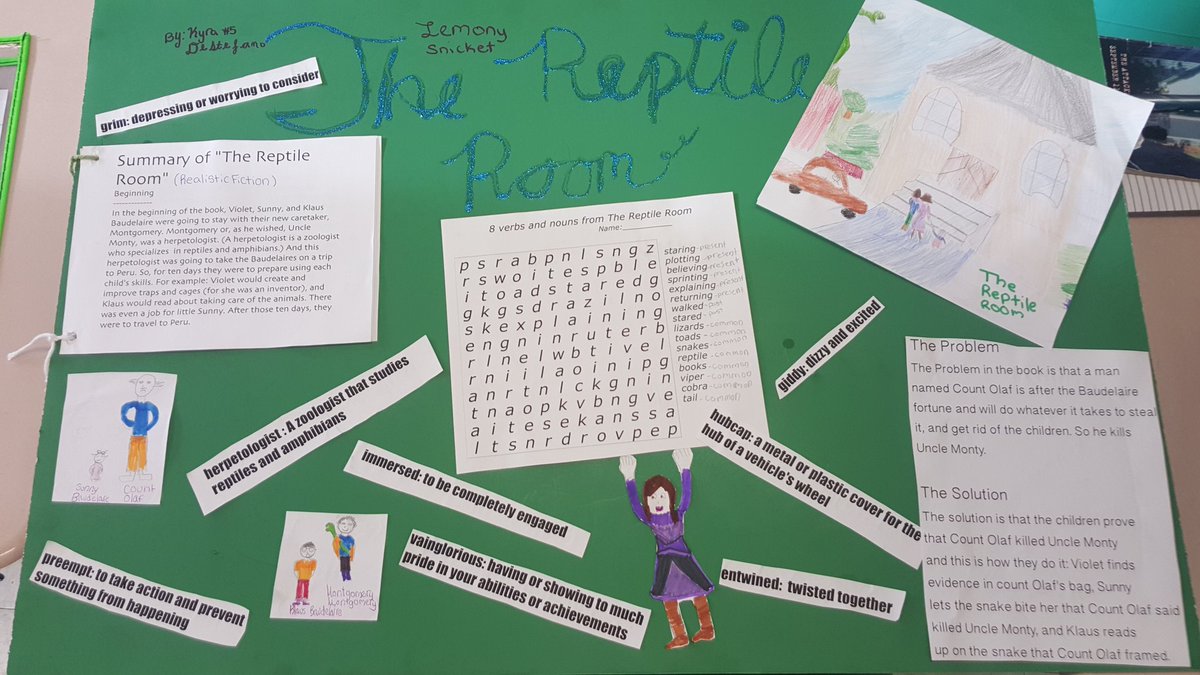 By: Kyra #5
DeStefano
Lemony
Snicket
The Reptile
Room
grim: depressing or worrying to consider
Summary of "The Reptile
Room" (Realistic Fiction)
Beginning
------------
In the beginning of the book, Violet, Sunny, and Klaus
Baudelaire were going to stay with their new caretaker,
Montgomery. Montgomery or, as he wished, Uncle
Monty, was a herpetologist. (A herpetologist is a zoologist
who specializes in reptiles and amphibians.) And this
herpetologist was going to take the Baudelaires on a trip
to Peru. So, for ten days they were to prepare using each
child's skills. For example: Violet would create and
improve traps and cages (for she was an inventor), and
Klaus would read about taking care of the animals. There
was even a job for little Sunny. After those ten days, they
were to travel to Peru.
8 verbs and nouns from The Reptile Room
Name:
p s r a b p n l s n g z
r s w o i t e s p b l e
i t o a d s t a r e d g
g k g s d r a z i l n o
s k e x p l a i n i n g
e n g n i n r u t e r b
r l n e l w b t i v e l
r n i i l a o i n i p g
a n r t n l c k g n i n
t n a o p k v b n g v e
a i t e s e k a n s s a
l t s n r d r o v p e p
staring - present
plotting - present
believing - present
sprinting - present
explaining - present
returning - present
walked - past
stared - past
lizards - common
toads - common
snakes - common
reptile - common
books - common
viper - common
cobra - common
tail - common
The
Reptile
Room
giddy: dizzy and excited
The Problem
The Problem in the book is that a man
named Count Olaf is after the Baudelaire
fortune and will do whatever it takes to steal
it, and get rid of the children. So he kills
Uncle Monty.
The Solution
The solution is that the children prove
that Count Olaf killed Uncle Monty
and this is how they do it: Violet finds
evidence in count Olaf's bag, Sunny
lets the snake bite her that Count Olaf said
killed Uncle Monty, and Klaus reads
up on the snake that Count Olaf framed.
Sunny
Baudelaire
Count
Olaf
herpetologist : A zoologist that studies
reptiles and amphibians
immersed: to be completely engaged
hubcap: a metal or plastic cover for the
hub of a vehicle's wheel
preempt: to take action and prevent
something from happening
Montgomery
Montgomery
Klaus Baudelaire
vainglorious: having or showing to much
pride in your abilities or achievements
entwined: twisted together